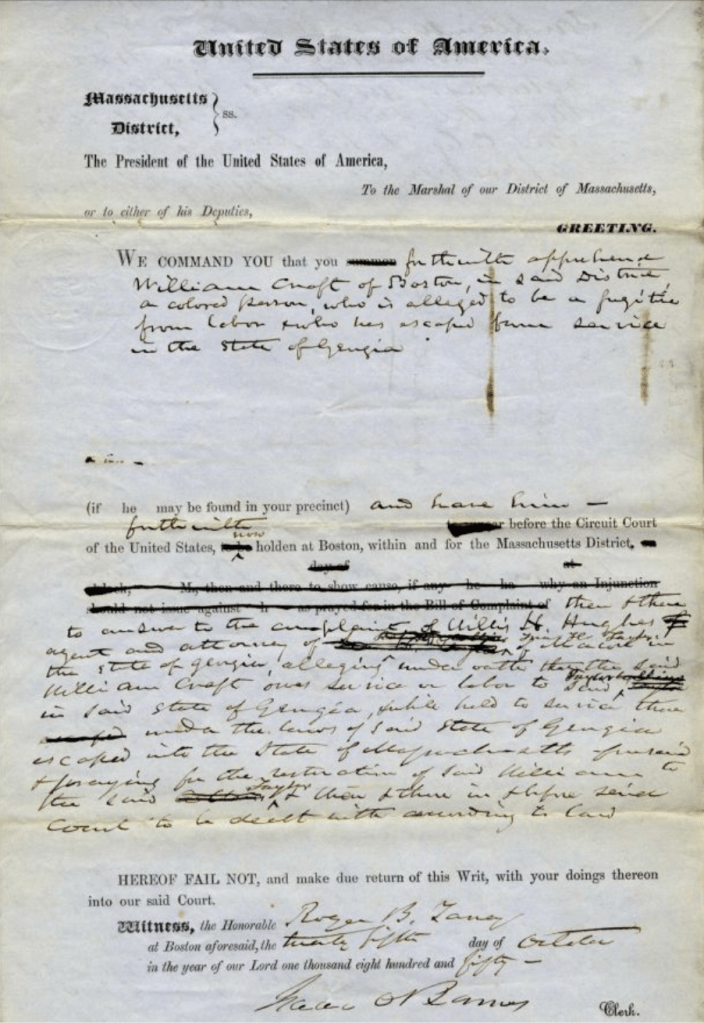 United States of America.
Massachusetts
District,
ss.
The President of the United States of America,
To the Marshal of our District of Massachusetts,
or to either of his Deputies,
GREETING.
WE COMMAND YOU that you summon forthwith apprehend
William Craft of Boston, in said District,
a colored person, who is alleged to be a fugitive
from labor & who has escaped from service
in the State of Georgia
(if he may be found in your precinct) and have him —
forthwith before the Circuit Court
now
of the United States, to be holden at Boston, within and for the Massachusetts District,
day of at
M, then and there to show cause, if any he ha why an Injunction
should not issue against h as prayed for in the Bill of Complaint of then & there
to answer to the complaint of Willis H. Hughes
agent and attorney of of Macon in
the State of Georgia, alleging under oath that the said
William Craft owes service or labor to said
in said State of Georgia, while held to service there
escaped under the laws of said State of Georgia
escaped into the State of Massachusetts aforesaid
& praying for the restoration of said William to
the said Taylor, & then & there in & before said
Court to be dealt with according to law
HEREOF FAIL NOT, and make due return of this Writ, with your doings thereon
into our said Court.
Witness, the Honorable Roger B. Taney
at Boston aforesaid, the twenty fifth day of October
in the year of our Lord one thousand eight hundred and fifty —
Isaac O Barnes
Clerk.